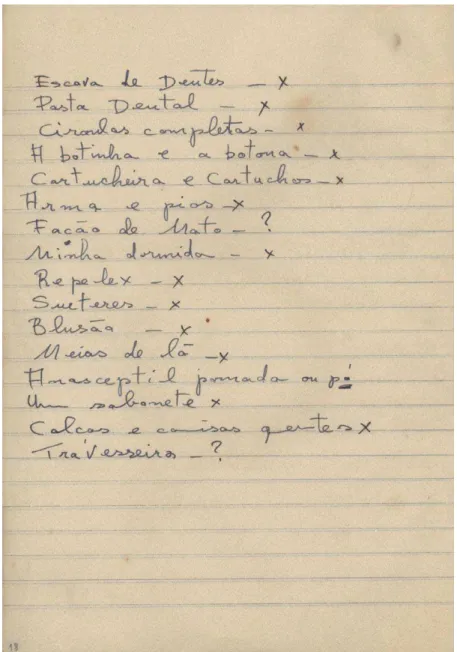 Escova de Dentes — x
Pasta Dental — x
Ciroulas completas - x
A botinha e a botona - x
Cartucheira e Cartuchos - x
Arma e pios - x
Facão de Mato - ?
Minha dormida - x
Repelex - x
Sueteres - x
Blusão - x
Meias de lã - x
Anasceptil pomada ou pó
Um sabonete x
Calcas e camisas quentes x
Travesseiro - ?
18